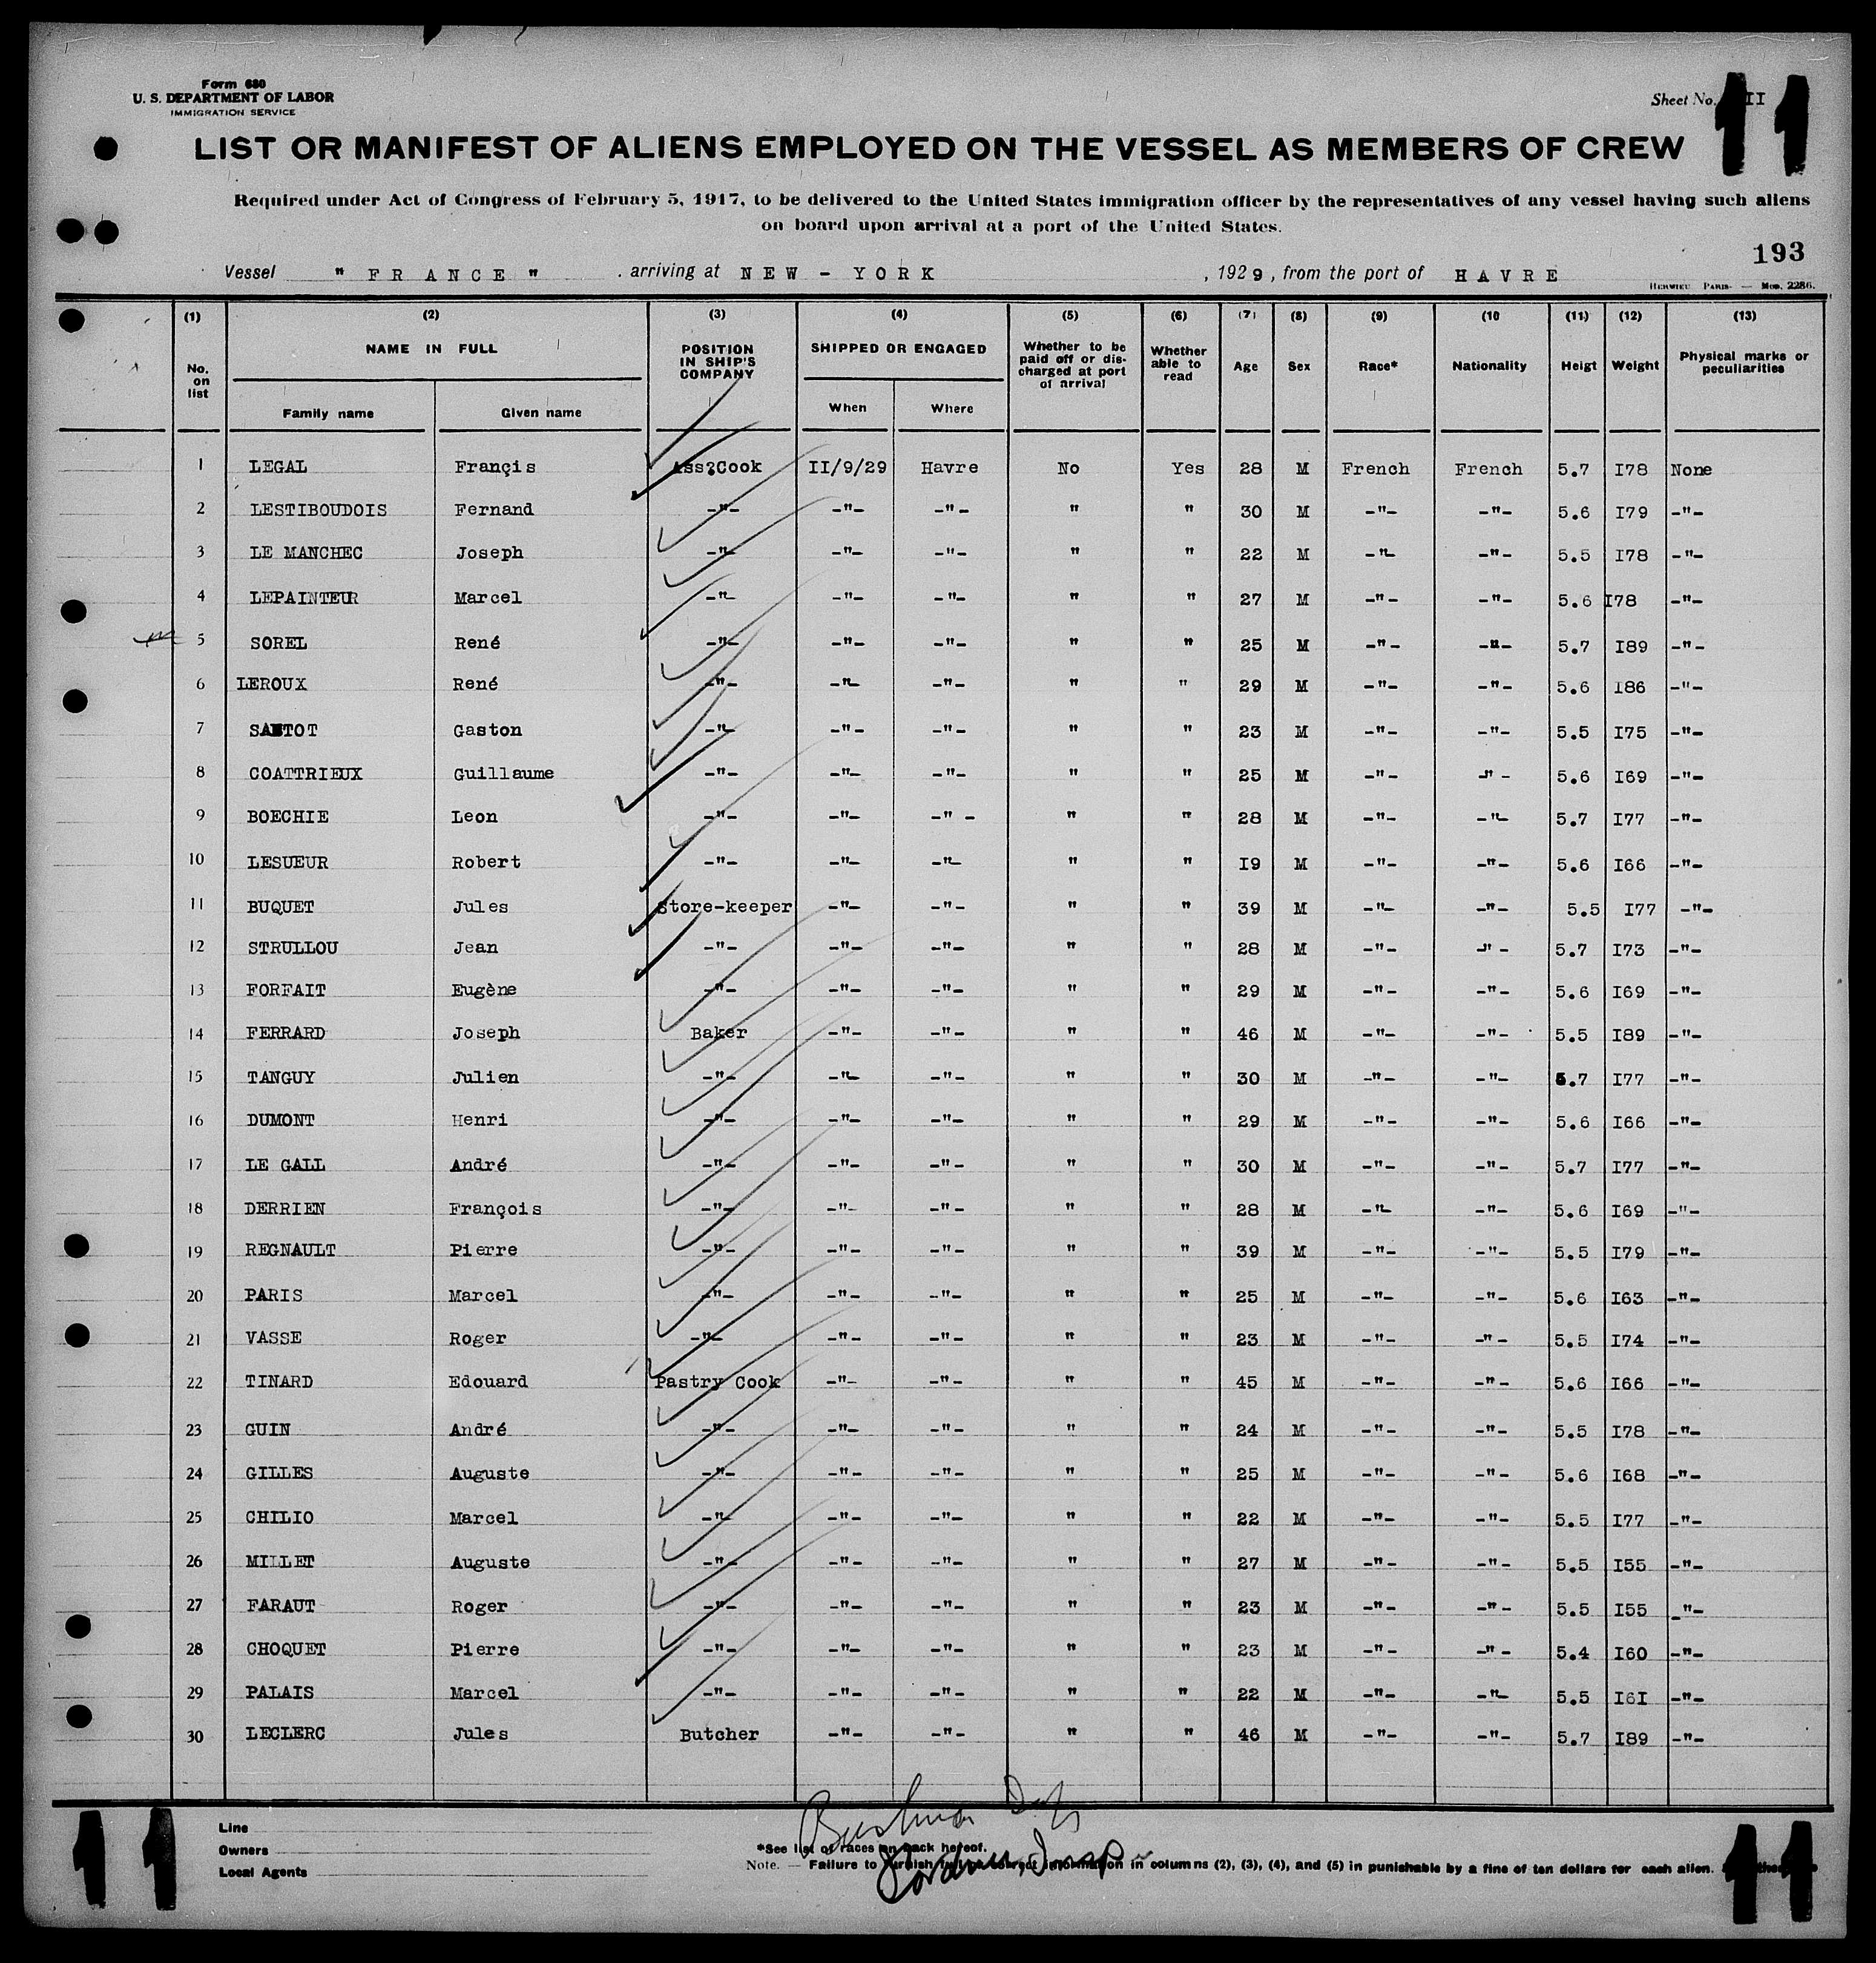 Form 680
U. S. DEPARTMENT OF LABOR
IMMIGRATION SERVICE
Sheet No. II
11
LIST OR MANIFEST OF ALIENS EMPLOYED ON THE VESSEL AS MEMBERS OF CREW
Required under Act of Congress of February 5, 1917, to be delivered to the United States immigration officer by the representatives of any vessel having such aliens
on board upon arrival at a port of the United States.
193
Vessel " F R A N C E " . arriving at N E W - Y O R K , 1929 , from the port of H A V R E
PARIS — MOD. 2286.
(1) (2) (3) (4) (5) (6) (7) (8) (9) (10 (11) (12) (13)
No. on list NAME IN FULL POSITION IN SHIP'S COMPANY SHIPPED OR ENGAGED Whether to be paid off or dis- charged at port of arrival Whether able to read Age Sex Race* Nationality Heigt Weight Physical marks or peculiarities
Family name Given name When Where
1 LEGAL Françis Ass?Cook II/9/29 Havre No Yes 28 M French French 5.7 I78 None
2 LESTIBOUDOIS Fernand -"- -"- -"- " " 30 M -"- -"- 5.6 I79 -"-
3 LE MANCHEC Joseph -"- -"- -"- " " 22 M -"- -"- 5.5 I78 -"-
4 LEPAINTEUR Marcel -"- -"- -"- " " 27 M -"- -"- 5.6 I78 -"-
5 SOREL René -"- -"- -"- " " 25 M -"- -"- 5.7 I89 -"-
6 LEROUX René -"- -"- -"- " " 29 M -"- -"- 5.6 I86 -"-
7 Gaston -"- -"- -"- " " 23 M -"- -"- 5.5 I75 -"-
8 COATTRIEUX Guillaume -"- -"- -"- " " 25 M -"- -"- 5.6 I69 -"-
9 BOECHIE Leon -"- -"- -"- " " 28 M -"- -"- 5.7 I77 -"-
10 LESUEUR Robert -"- -"- -"- " " I9 M -"- -"- 5.6 I66 -"-
11 BUQUET Jules Store-keeper -"- -"- " " 39 M -"- -"- 5.5 I77 -"-
12 STRULLOU Jean -"- -"- -"- " " 28 M -"- -"- 5.7 I73 -"-
13 FORFAIT Eugène -"- -"- -"- " " 29 M -"- -"- 5.6 I69 -"-
14 FERRARD Joseph Baker -"- -"- " " 46 M -"- -"- 5.5 I89 -"-
15 TANGUY Julien -"- -"- -"- " " 30 M -"- -"- 5.7 I77 -"-
16 DUMONT Henri -"- -"- -"- " " 29 M -"- -"- 5.6 I66 -"-
17 LE GALL André -"- -"- -"- " " 30 M -"- -"- 5.7 I77 -"-
18 DERRIEN François -"- -"- -"- " " 28 M -"- -"- 5.6 I69 -"-
19 REGNAULT Pierre -"- -"- -"- " " 39 M -"- -"- 5.5 I79 -"-
20 PARIS Marcel -"- -"- -"- " " 25 M -"- -"- 5.6 I63 -"-
21 VASSE Roger -"- -"- -"- " " 23 M -"- -"- 5.5 I74 -"-
22 TINARD Edouard Pastry Cook -"- -"- " " 45 M -"- -"- 5.6 I66 -"-
23 GUIN André -"- -"- -"- " " 24 M -"- -"- 5.5 I78 -"-
24 GILLES Auguste -"- -"- -"- " " 25 M -"- -"- 5.6 I68 -"-
25 CHILIO Marcel -"- -"- -"- " " 22 M -"- -"- 5.5 I77 -"-
26 MILLET Auguste -"- -"- -"- " " 27 M -"- -"- 5.5 I55 -"-
27 FARAUT Roger -"- -"- -"- " " 23 M -"- -"- 5.5 I55 -"-
28 CHOQUET Pierre -"- -"- -"- " " 23 M -"- -"- 5.4 I60 -"-
29 PALAIS Marcel -"- -"- -"- " " 22 M -"- -"- 5.5 I6I -"-
30 LECLERC Jules Butcher -"- -"- " " 46 M -"- -"- 5.7 I89 -"-
11
Line
Owners
Local Agents
*See list of races on back hereof.
Note. — Failure to furnish information in columns (2), (3), (4), and (5) in punishable by a fine of ten dollars for each alien.
11